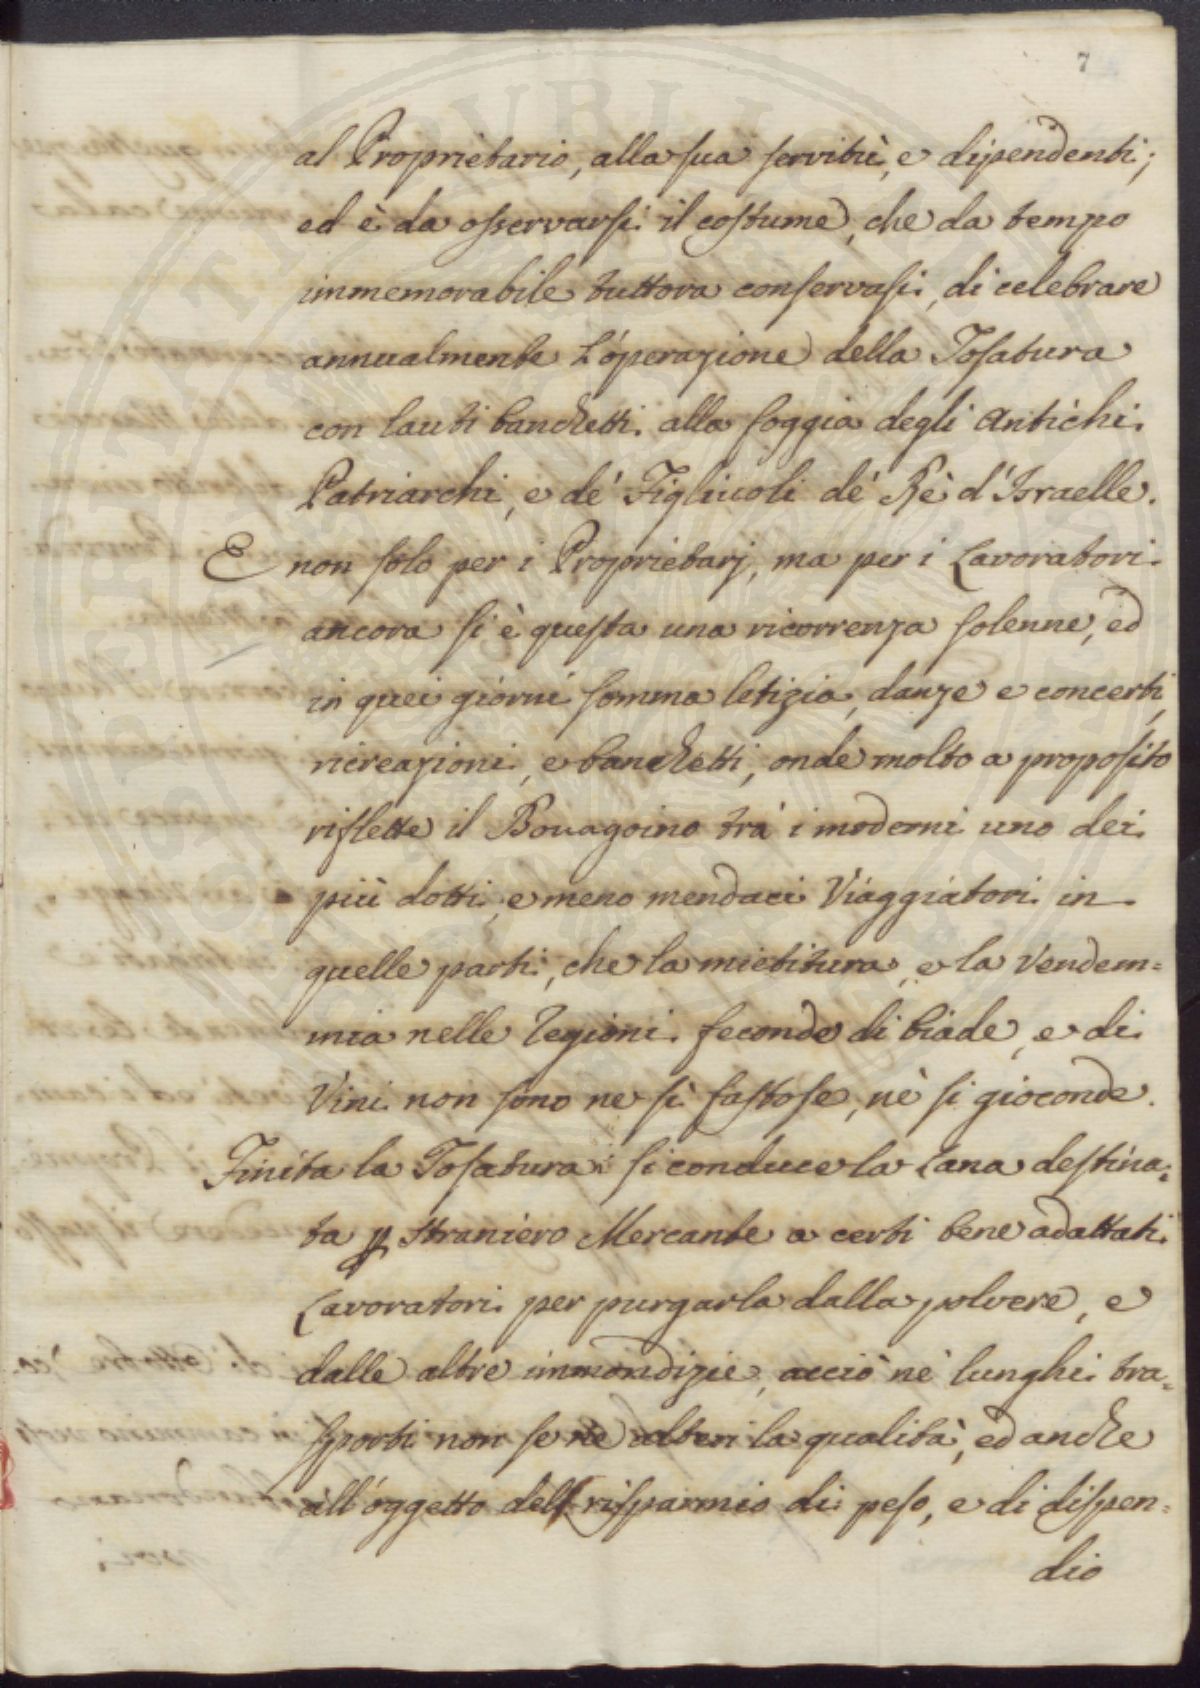 7
al Proprietario, alla sua servitù, e dipendenti;
ed è da osservarsi il costume, che da tempo
immemorabile tuttora conservasi, di celebrare
annualmente L'operazione della Tosatura
con lauti banchetti alla foggia degli Antichi
Patriarchi, e de' Figliuoli de' Rè d'Israelle.
E non solo per i Proprietarj, ma per i Lavoratori
ancora si è questa una ricorrenza solenne, ed
in quei giorni somma letizia, danze e concerti,
ricreazioni, e banchetti, onde molto a proposito
riflette il Bovagoino trà i moderni uno dei
più dotti, e meno mendaci Viaggiatori in
quelle parti, che la mietitura, e la Vendem=
mia nelle Regioni feconde di biade, e di
Vini non sono ne sì fastose, nè si gioconde.
Finita la Tosatura si conduce la Lana destina=
ta p straniero Mercante a certi bene adattati
Lavoratori per purgarla dalla polvere, e
dalle altre immondizie, acciò nè lunghi tra=
sporti non se ne alteri la qualità, ed anche
all'oggetto del risparmio di peso, e di dispen=
dio